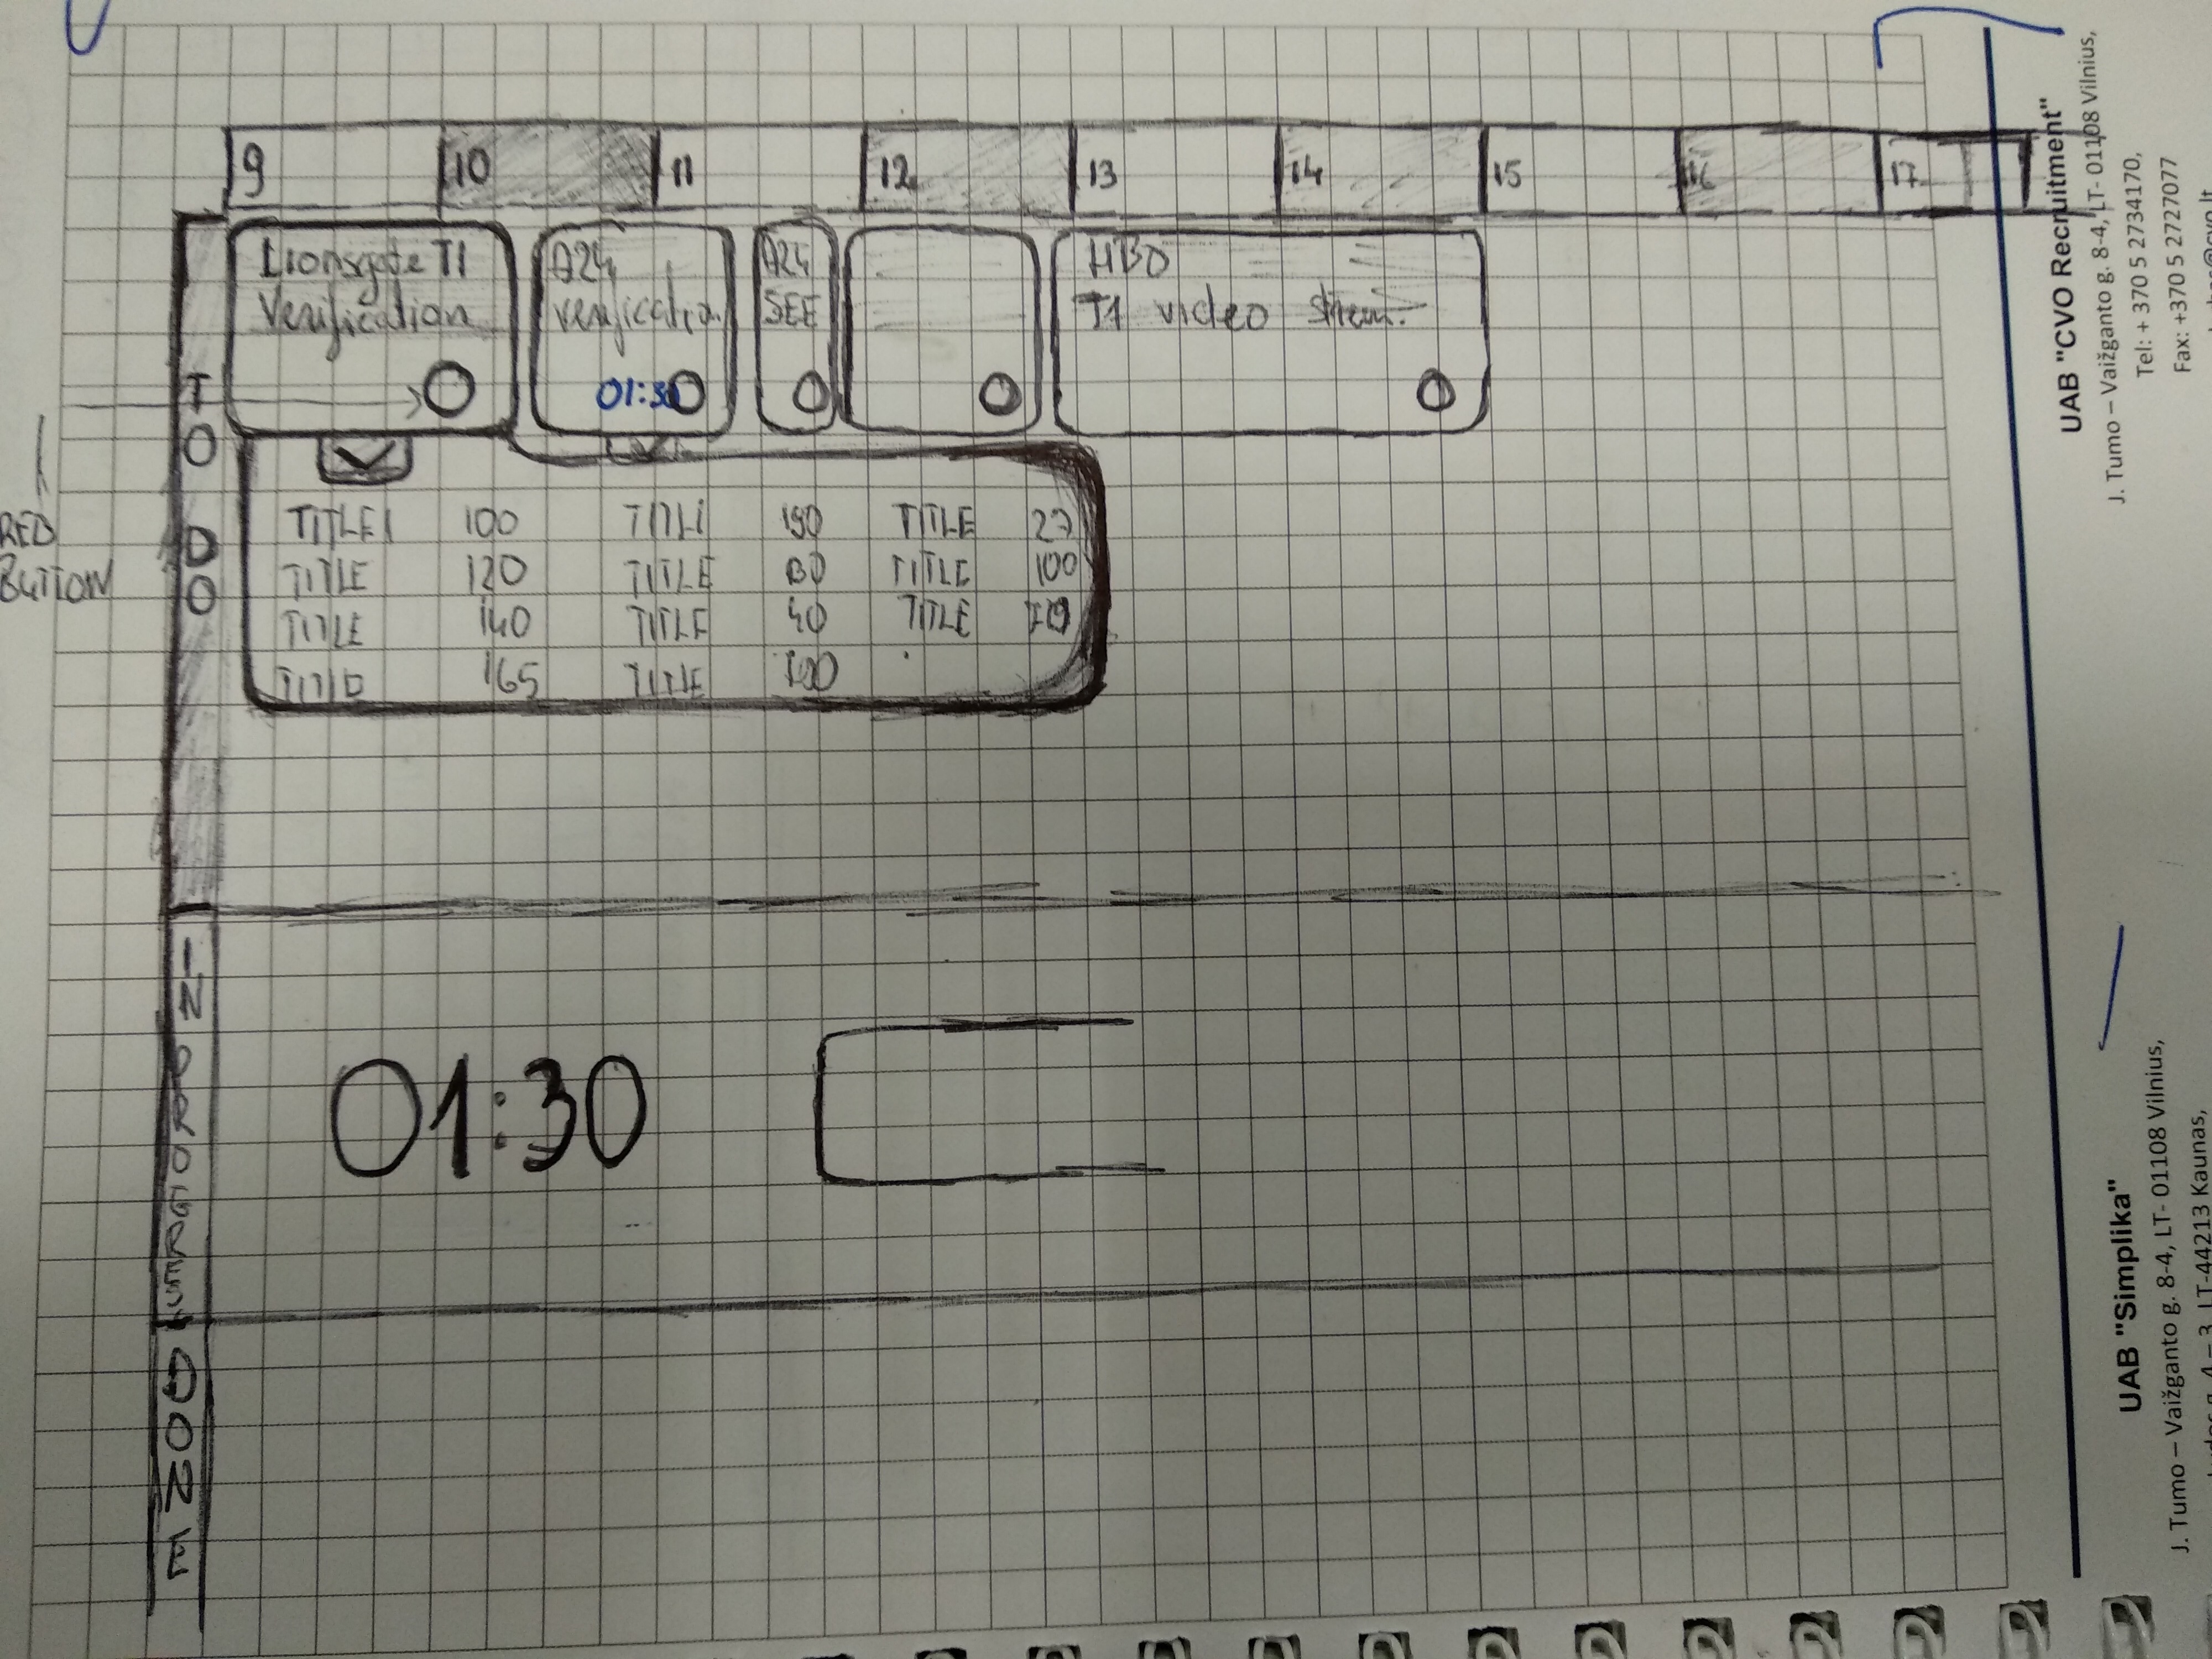 9 10 11 12 13 14 15 16 17
Lionsgate T1
Verification
A24
verification
01:30
A24
SEE
HBO
T1 video
TO DO
RED
BUTTON
TITLE1 100 TITLE 190 TITLE 27
TITLE 120 TITLE 80 TITLE 100
TITLE 140 TITLE 40 TITLE
TITLE 165 TITLE 100
IN PROGRESS
01:30
DONE
UAB "CVO Recruitment"
J. Tumo – Vaižganto g. 8-4, LT- 01108 Vilnius,
Tel: + 370 5 2734170,
Fax: +370 5 2727077
UAB "Simplika"
J. Tumo – Vaižganto g. 8-4, LT- 01108 Vilnius,
4 – 3, LT-44213 Kaunas,